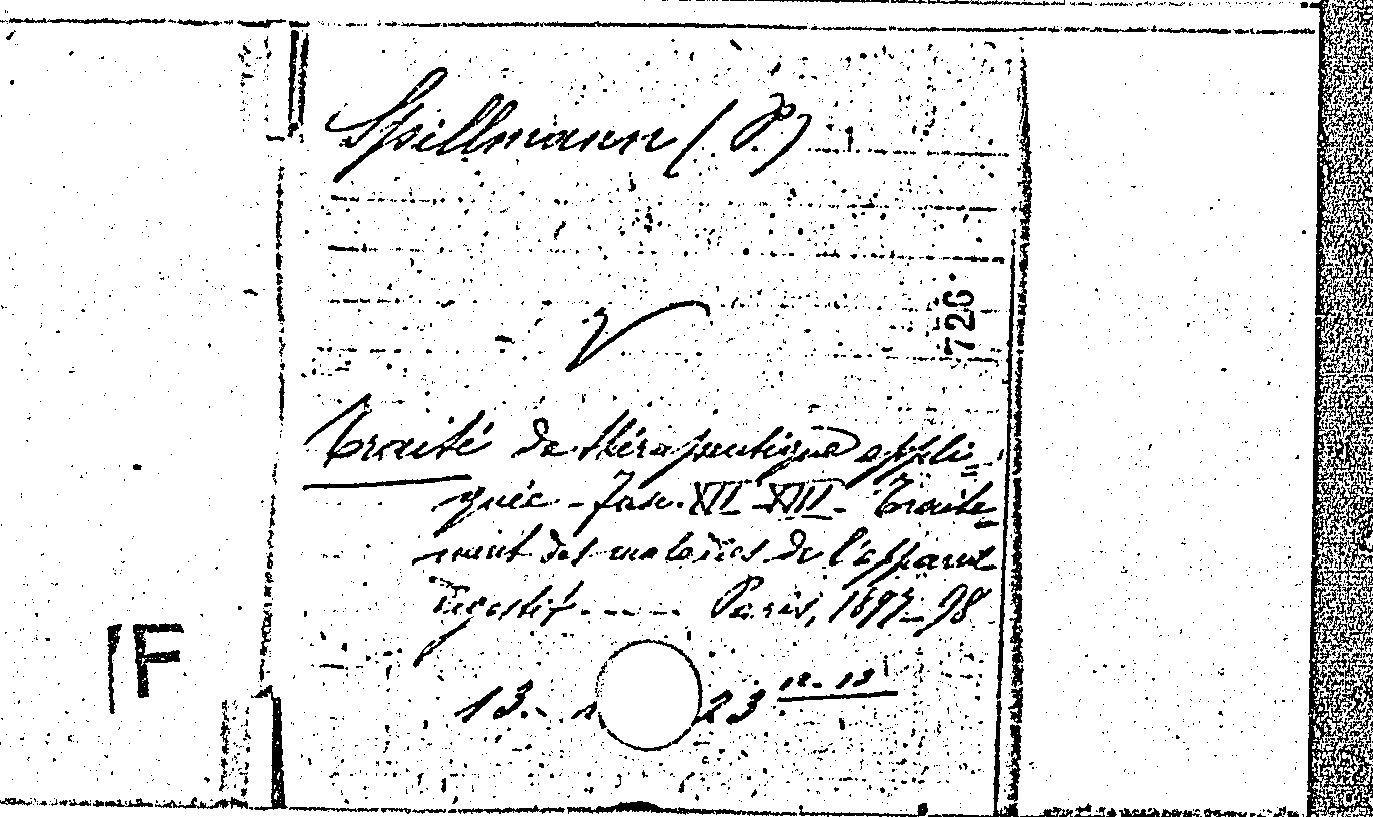 Spillmann (P.)
V
726
Traité de thérapeutique appli=
quée - Fasc. XII-XIII - Traite=
ment des maladies de l'appareil
digestif ---- Paris, 1897-98
13.- 23 12-13
F